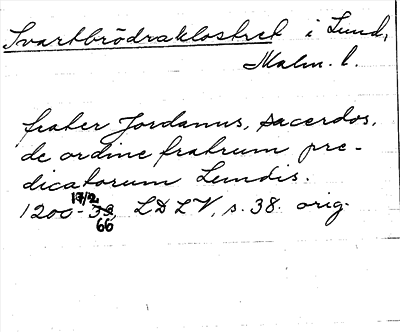 Svartbrödraklostret i Lund,
Malm. l.
frater Jordanus, sacerdos,
de ordine fratrum pre-
dicatorum Lundis.
17/2
1200-39, LDLV, s. 38. orig.
66